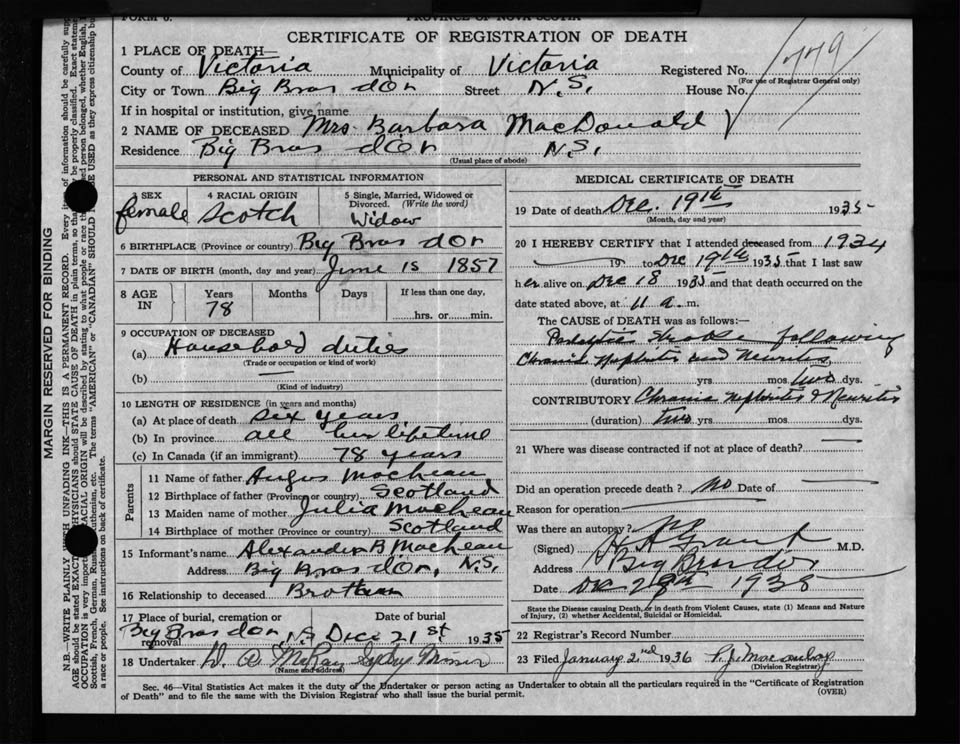 FORM 6. PROVINCE OF NOVA SCOTIA
CERTIFICATE OF REGISTRATION OF DEATH
1 PLACE OF DEATH—
County of Victoria Municipality of Victoria Registered No. 779
(For use of Registrar General only)
City or Town Big Bras d'Or Street N.S. House No.
If in hospital or institution, give name
2 NAME OF DECEASED Mrs. Barbara MacDonald
Residence Big Bras d'Or N.S.
(Usual place of abode)
PERSONAL AND STATISTICAL INFORMATION
3 SEX female
4 RACIAL ORIGIN Scotch
5 Single, Married, Widowed or Divorced. (Write the word) Widow
6 BIRTHPLACE (Province or country) Big Bras d'Or
7 DATE OF BIRTH (month, day and year) June 15 1857
8 AGE IN Years 78 Months Days If less than one day, hrs. or min.
9 OCCUPATION OF DECEASED
(a) Household duties
(Trade or occupation or kind of work)
(b) —
(Kind of industry)
10 LENGTH OF RESIDENCE (in years and months)
(a) At place of death Six years
(b) In province all her lifetime
(c) In Canada (if an immigrant) 78 years
Parents
11 Name of father Angus MacLean
12 Birthplace of father (Province or country) Scotland
13 Maiden name of mother Julia MacLean
14 Birthplace of mother (Province or country) Scotland
15 Informant's name Alexander B MacLean
Address Big Bras d'Or, N.S.
16 Relationship to deceased Brother
17 Place of burial, cremation or removal Big Bras d'Or N.S. Date of burial Dec 21st 1935
18 Undertaker D. A. McRay Sydney Mines
(Name and address)
MEDICAL CERTIFICATE OF DEATH
19 Date of death Dec. 19th 1935
(Month, day and year)
20 I HEREBY CERTIFY that I attended deceased from 1934
19 to Dec 19th 1935 that I last saw
her alive on Dec 18 1935 and that death occurred on the
date stated above, at 11 a. m.
The CAUSE of DEATH was as follows:—
Paralytic Stroke following
Chronic Nephritis and Neuritis
(duration) yrs. mos. two dys.
CONTRIBUTORY Chronic Nephritis & Neuritis
(duration) two yrs. mos. dys.
21 Where was disease contracted if not at place of death? —
Did an operation precede death? No Date of —
Reason for operation —
Was there an autopsy?
(Signed) H A Grant M.D.
Address Big Bras d'Or
Date
State the Disease causing Death, or in death from Violent Causes, state (1) Means and Nature
of Injury, (2) whether Accidental, Suicidal or Homicidal.
22 Registrar's Record Number
23 Filed January 2nd 1936 P. J. Macaulay
(Division Registrar)
Sec. 46—Vital Statistics Act makes it the duty of the Undertaker or person acting as Undertaker to obtain all the particulars required in the "Certificate of Registration
of Death" and to file the same with the Division Registrar who shall issue the burial permit. (OVER)
MARGIN RESERVED FOR BINDING